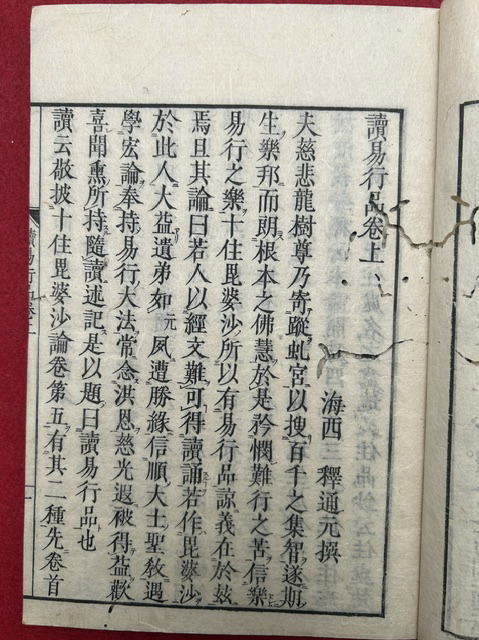 讀易行品卷上
海西 釋通元撰
夫慈悲龍樹尊乃寄蹤虬宮以搜百千之集智遂期
生樂邦而朗根本之佛慧於是矜憫難行之苦信樂
易行之樂十住毘婆沙所以有易行品諒義在於玆
焉且其論曰若人以經文難可得讀誦若作毘婆沙
於此人大益遺弟如元夙遭勝緣信順大士聖敎遇
學宏論奉持易行大法常念洪恩慈光遐被得益歡
喜聞熏所持隨讀述記是以題曰讀易行品也
讀云敬披十住毘婆沙論卷第五有其二種先卷首